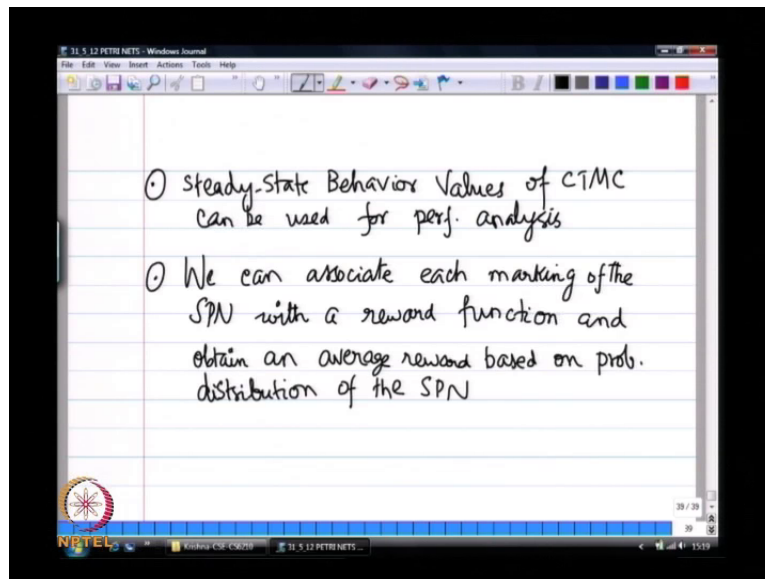 31_5_12 PETRI NETS - Windows Journal
File Edit View Insert Actions Tools Help
B I
⊙ Steady-State Behavior Values of CTMC
can be used for perf. analysis
⊙ We can associate each marking of the
SPN with a reward function and
obtain an average reward based on prob.
distribution of the SPN
39 / 39
39
NPTEL
Krishna-CSE-CS6210
31_5_12 PETRI NETS ...
15:19